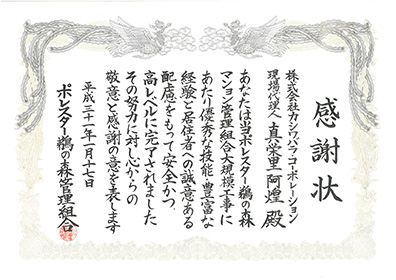 感謝状
株式会社カシワバラ・コーポレーション
現場代理人 真栄里 阿煌 殿
あなたは当ポレスター鵜の森
マンション管理組合大規模工事に
あたり優秀な技能、豊富な
経験と居住者への誠意ある
配慮をもって安全かつ、
高レベルに完了されました
その努力に対し心からの
敬意と感謝の意を表します
平成三十一年一月十七日
ポレスター鵜の森管理組合